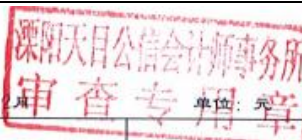 溧阳天目公信会计师事务所
审查专用章
月
单位：元